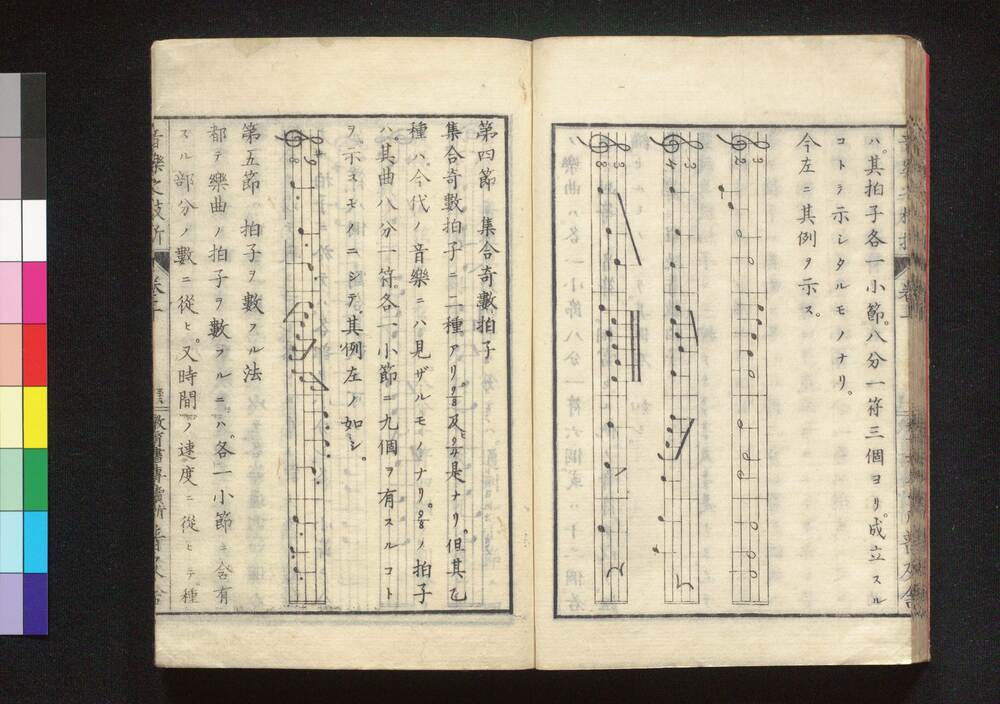 ハ、其拍子各一小節、八分一符三個ヨリ成立スル
コトヲ示シタルモノナリ。
今左ニ其例ヲ示ス。
3 2
3 4
3 8
第四節 集合奇數拍子
集合奇數拍子ニ二種アリ、9 8及ビ9 4是ナリ。但其乙
種ハ、今代ノ音樂ニハ見ザルモノナリ。9 8ノ拍子
ハ、其曲八分一符、各一小節ニ九個ヲ有スルコト
ヲ示スモノニシテ、其例左ノ如シ。
9 8
第五節 拍子ヲ數フル法
都テ樂曲ノ拍子ヲ數フルニハ、各一小節ニ含有
スル部分ノ數ニ從ヒ、又時間ノ速度ニ從ヒテ、種
音樂之枝折 卷上 普及舍